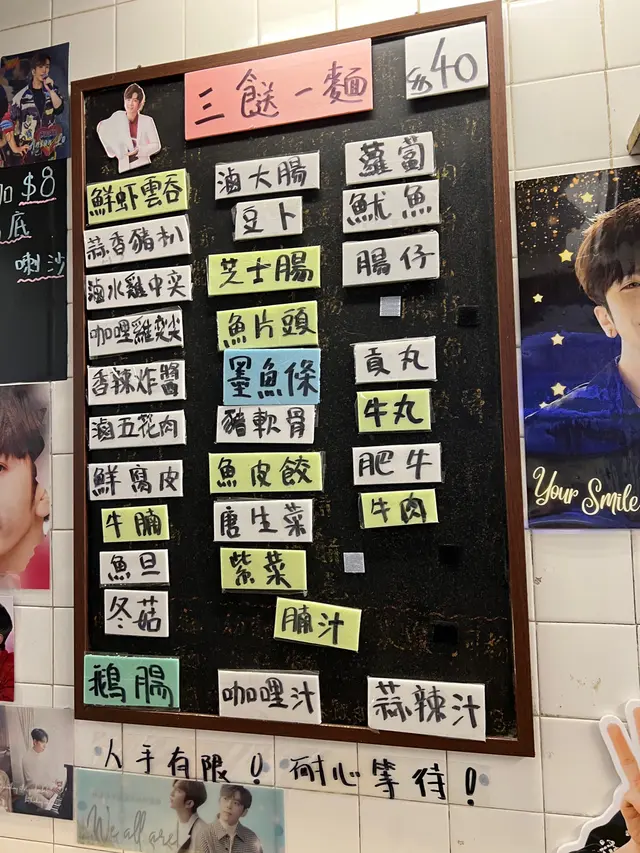 三餸一麵
$40
鮮虾雲吞
蒜香豬扒
滷水雞中夾
咖哩雞尖
香辣炸醬
滷五花肉
鮮腐皮
牛腩
魚旦
冬菇
鵝腸
滷大腸
豆卜
芝士腸
魚片頭
墨魚條
豬軟骨
魚皮餃
唐生菜
紫菜
腩汁
咖哩汁
蘿蔔
魷魚
腸仔
貢丸
牛丸
肥牛
牛肉
蒜辣汁
人手有限！耐心等待！
加$8
底
喇沙
Your Smile
We all are